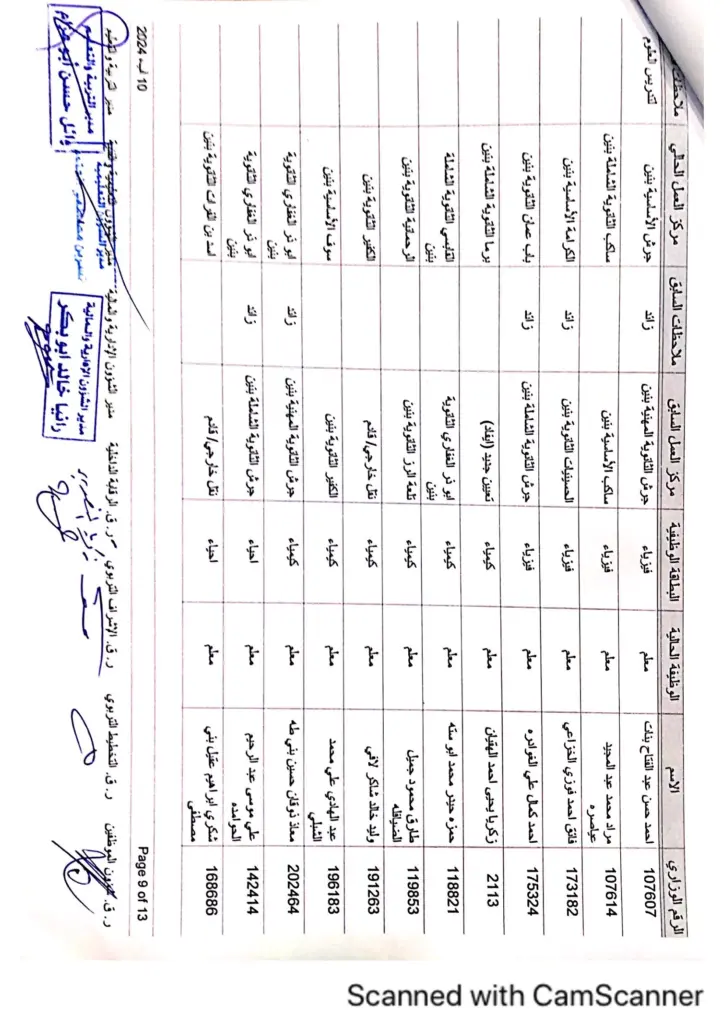 الرقم الوزاري الاسم الوظيفة الحالية البطاقة الوظيفية مركز العمل السابق ملاحظات السابق مركز العمل الحالي ملاحظات
107607 احمد حسن عبد الفتاح بنات معلم فيزياء جرش الثانوية المهنية بنين زائد جرش الأساسية بنين لتدريس العلوم
107614 مراد محمد عبد المجيد عياصره معلم فيزياء ساكب الأساسية بنين ساكب الثانوية الشاملة بنين
173182 فائق احمد فوزي الخزاعي معلم فيزياء الحسينيات الثانوية بنين زائد الكرامة الأساسية بنين
175324 احمد كمال علي الفوائره معلم فيزياء جرش الثانوية الشاملة بنين زائد باب عمان الثانوية بنين
2113 زكريا يحيى احمد الهقيان معلم كيمياء تعيين جديد (ايفاد) برما الثانوية الشاملة بنين
118821 حمزه حيدر محمد ابو سته معلم كيمياء ابو ذر الغفاري الثانوية بنين القادسي الثانوية الشاملة بنين
119853 طارق محمود جميل معلم كيمياء تلعة الرز الثانوية بنين الرحمانية الثانوية بنين
191263 وليد خالد شاكر لافي معلم كيمياء نقل خارجي/ قادم الكفير الثانوية بنين
196183 عبد الهادي علي محمد الشبلي معلم كيمياء الكفير الثانوية بنين سوف الأساسية بنين
202464 معاذ ذوقان حسين بني طه معلم كيمياء جرش الثانوية المهنية بنين زائد ابو ذر الغفاري الثانوية بنين
142414 علي موسى عبد الرحيم الحوامده معلم احياء جرش الثانوية الشاملة بنين ابو ذر الغفاري الثانوية بنين
168686 شكري ابراهيم عقيل بني مصطفى معلم احياء نقل خارجي/ قادم اسد بن الفرات الثانوية بنين
Page 9 of 13
10 آب، 2024
ر. ق. شؤون الموظفين ر. ق. التخطيط التربوي ر. ق. الإشراف التربوي ر. ق. الرقابة الداخلية مدير الشؤون الإدارية والمالية مدير الشؤون التعليمية والفنية مدير التربية والتعليم
مدير الشؤون الإدارية والمالية
رانيا خالد ابو بكر
مدير الشؤون التعليمية
مدير التربية والتعليم
وائل حسن ابو عزام
Scanned with CamScanner